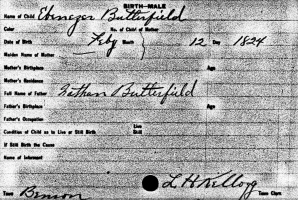 BIRTH—MALE
Name of Child Ebenezer Butterfield
Color No. of Child of Mother
Date of Birth Feby Month 12 Day 1824
Maiden Name of Mother
Mother's Birthplace Age
Mother's Residence
Full Name of Father Nathan Butterfield
Father's Birthplace Age
Father's Occupation
Condition of Child as to Live or Still Birth Live Still
If Still Birth the Cause
Name of Informant
Town Benson L H Kellogg Town Clerk